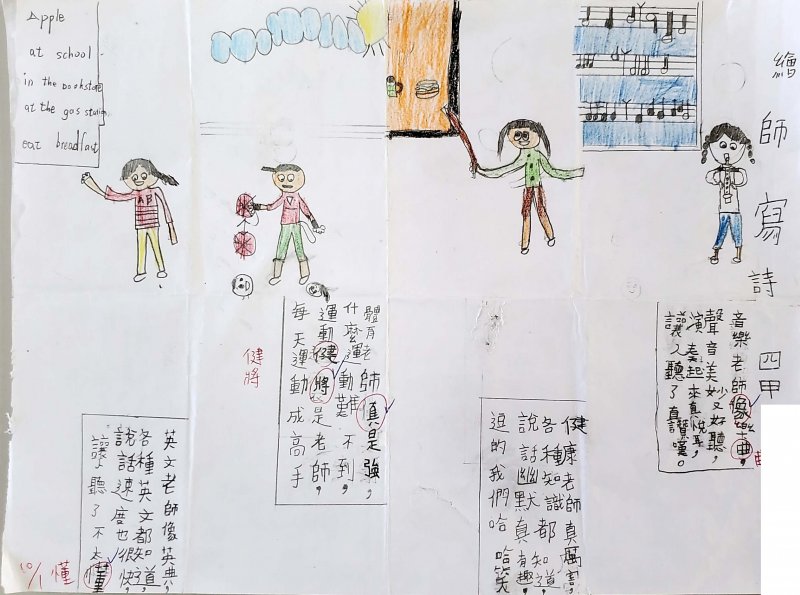 繪師寫詩
四甲
音樂老師像樂曲，
聲音美妙又好聽，
演奏起來真悅耳，
讓人聽了直讚嘆。
健康老師真厲害，
各種知識都知道，
說話幽默真有趣，
逗的我們哈哈笑
體育老師真是強，
什麼運動難不到，
運動健將是老師，
每天運動成高手
健將
英文老師像英典，
各種英文都知道，
說話速度也很快，
讓聽了不太懂
10/1 懂
Apple
at school
in the bookstore
at the gas station
eat breadfast
AB